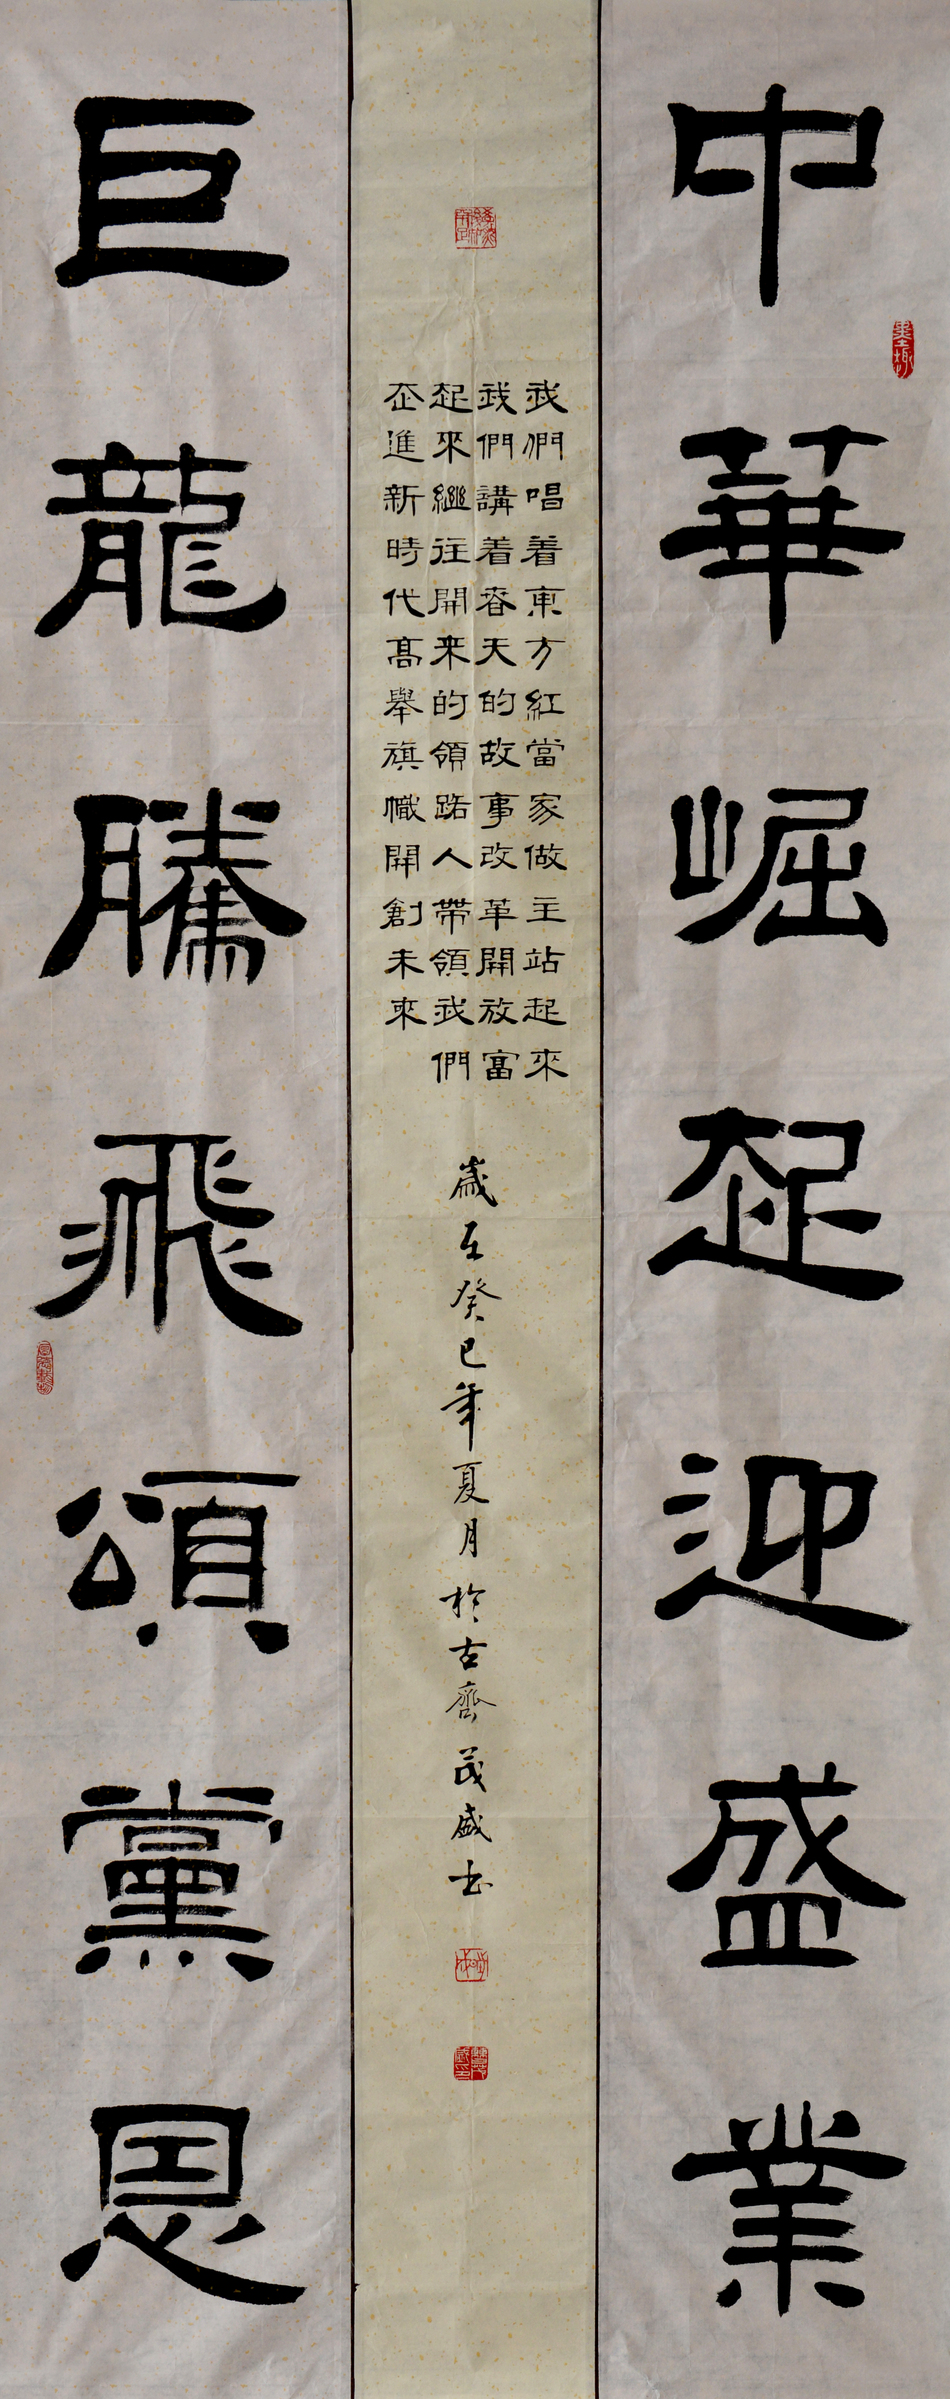 中華崛起迎盛業
我們唱着東方紅當家做主站起來
我們講着春天的故事改革開放富
起來繼往開来的領路人帶領我們
走進新時代高舉旗幟開創未來
歲在癸巳年夏月於古齊茂盛书
巨龍騰飛頌黨恩